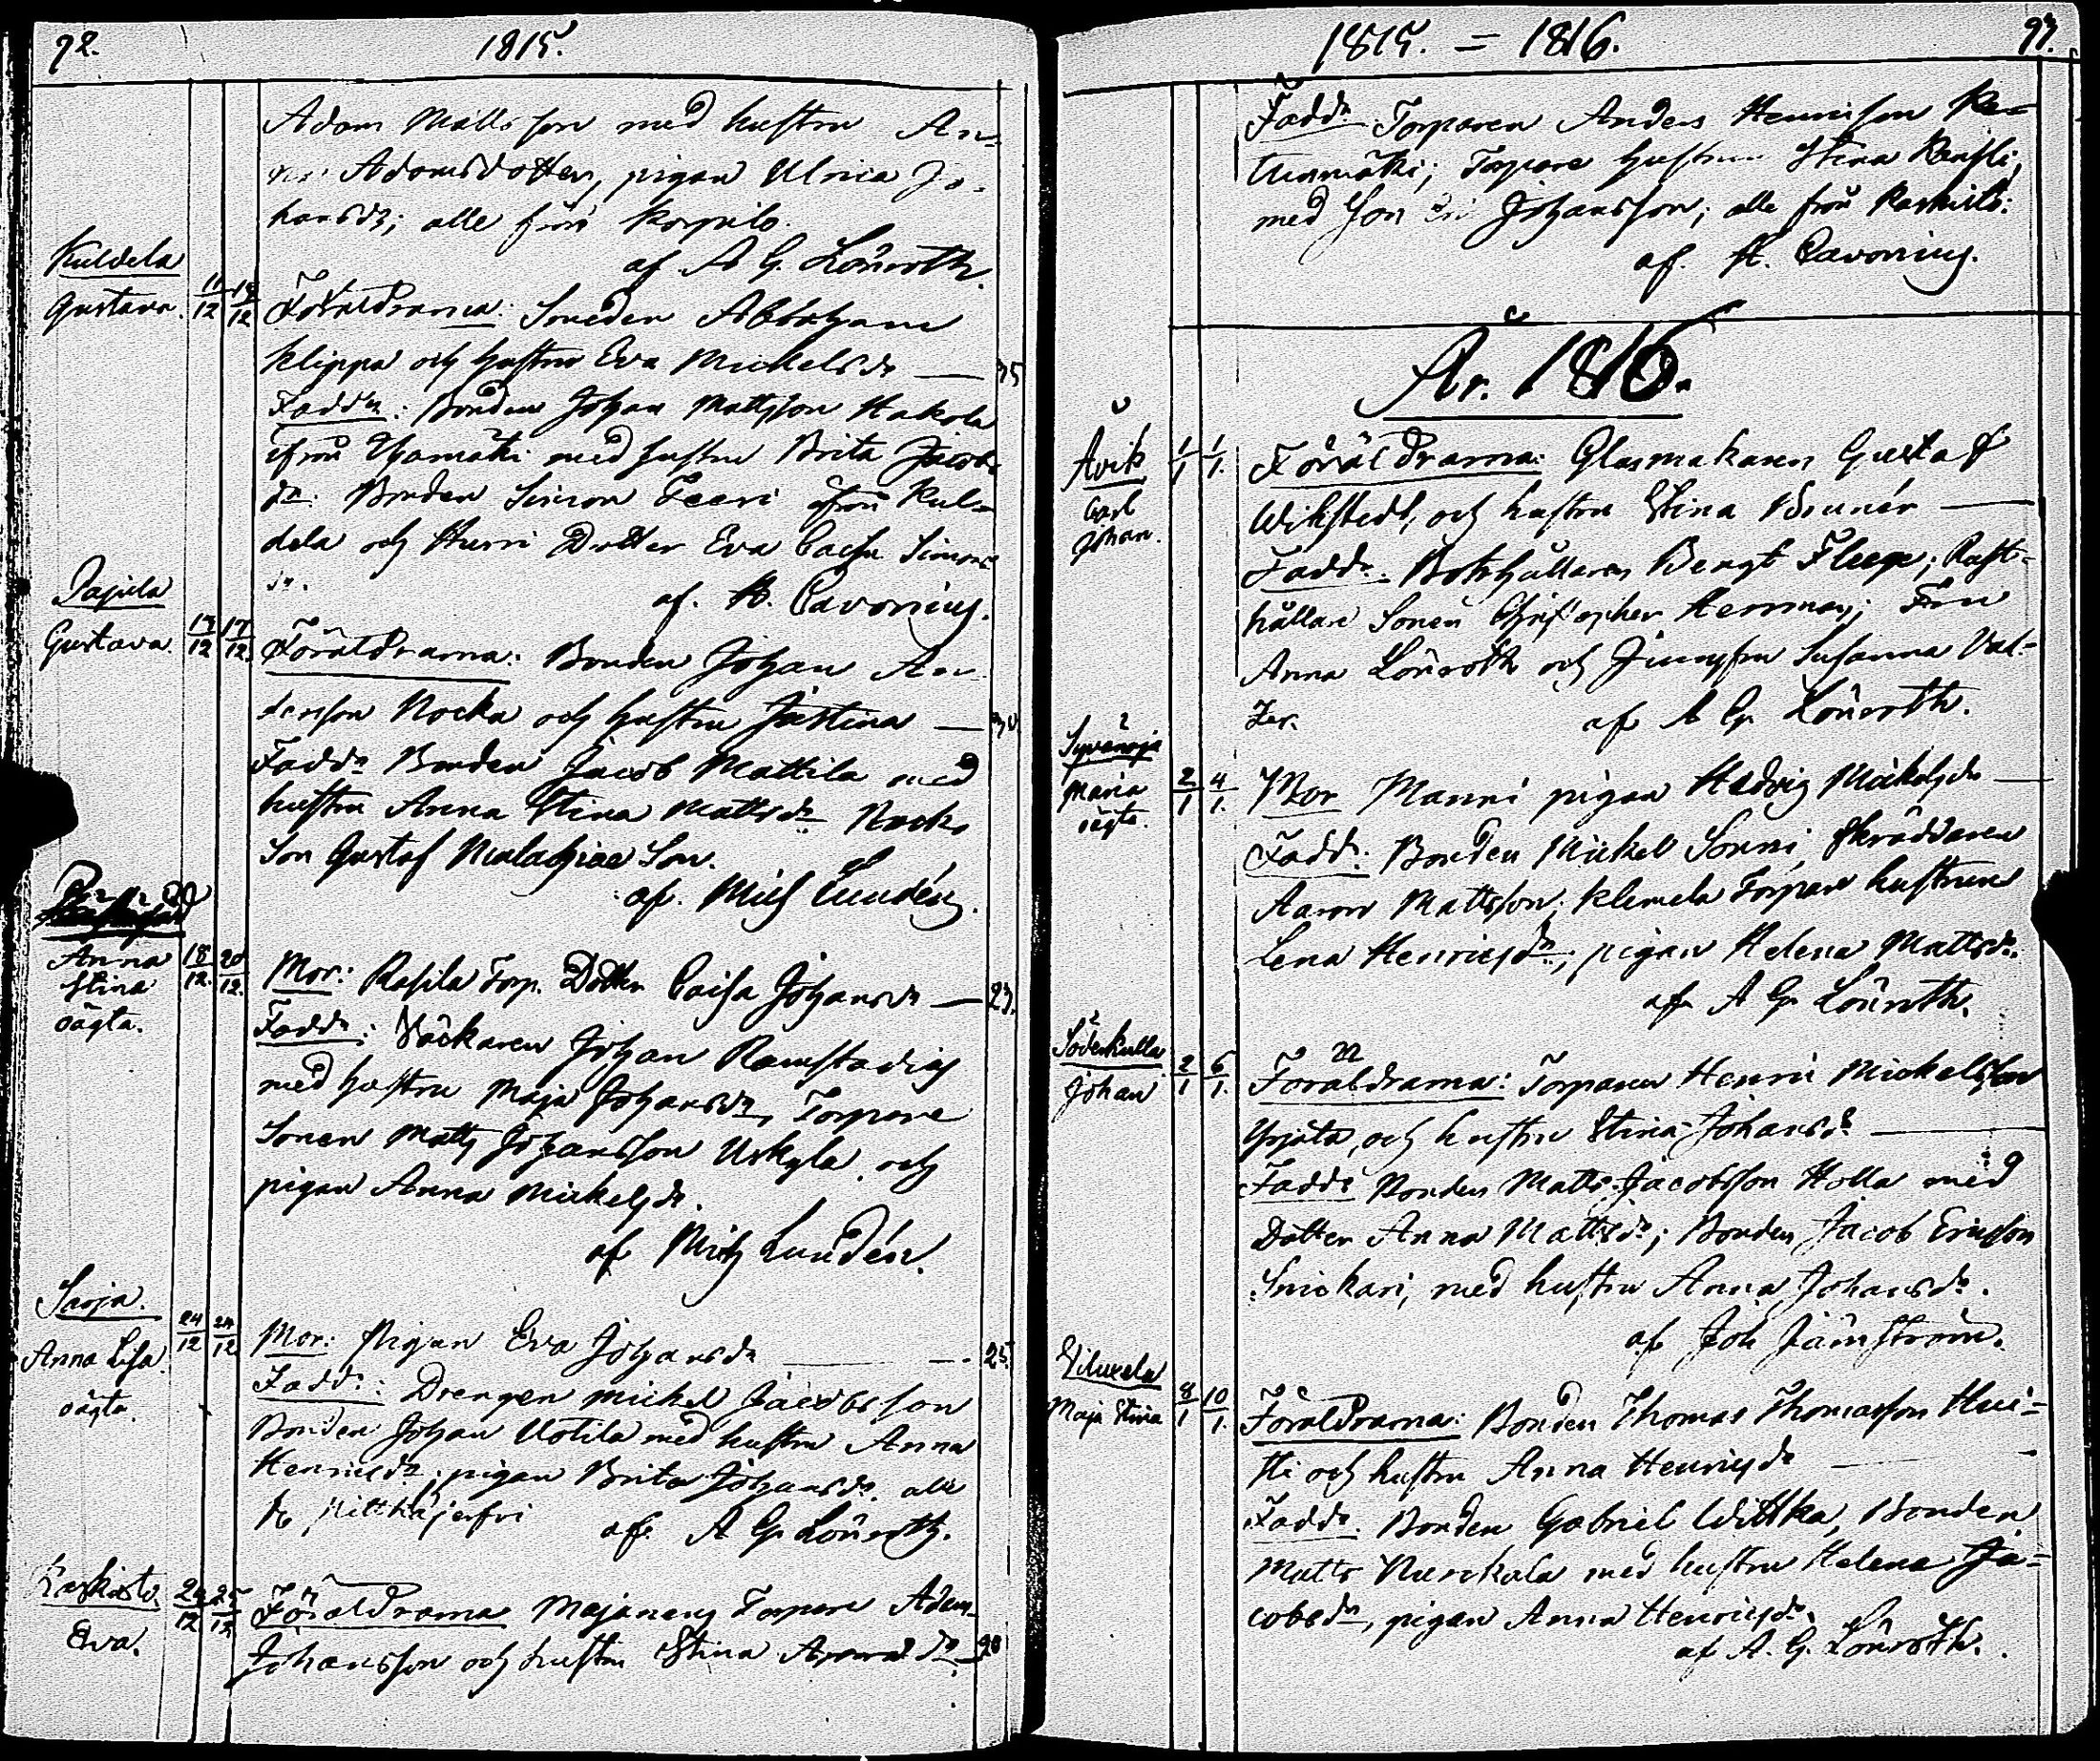 92.
1815.
Adam Matts son med hustru An=
na Adamsdotter, pigan Ulrica Jo-
hansdr; alle från Korpilo.
af A G. Lönroth.
Kuldela
Gustava. 11/12 12/12
Föräldrarna: Smeden Abraham
Klippa och hustru Eva Mickelsdr — 35
Faddr: Bonden Johan Mattsson Hakola
ifrån Yamäki med hustru Brita Jacobs
dr. Bonden Simon Teeri ifrån Kul=
dela och Hurri Dotter Eva Caisa Simons
dr.
af. A. Cavonius.
Pajula
Gustava. 13/12 17/12
Föräldrarna: Bonden Johan An-
dersson Nocka och hustru Justina —
Faddr Bonden Jacob Mattila med
hustru Anna Stina Mattsdr Nocka
Son Gustaf Malachiae Son.
af. Mich Lundén.
Anna
Stina
oägta. 18/12. 20/12.
Mor: Rasila Torp. Dotter Caisa Johansdr — 23.
Faddr: Väckaren Johan Ramstadius
med hustru Maja Johansdr, Torpare
Sonen Matts Johansson Uskyla, och
pigan Anna Mickelsdr.
af Mich Lundén.
Sarja.
Anna Lisa
oägta. 24/12 24/12
Mor: Pigan Eva Johansdr — 25.
Faddr: Drengen Mickel Jacobsson
Bonden Johan Uotila med hustru Anna
Henricsdr; pigan Brita Johansdr. alle
fr. Pitkäjerfvi af A G. Lönroth.
Karkisto.
Eva. 24/12 25/12
Föräldrarna Majanens Torpare Adam
Johansson och hustru Stina Aronsdr — 28
1815. = 1816.
93.
Faddr Torparen Anders Henricson
med Son Johansson; alle från Karkisto:
af. A. Cavonius.
År. 1816.
Åvik
Carl
Johan. 1/1 1/1.
Föräldrarna: Glasmakaren Gustaf
Wikstedt, och hustru Stina Brunér —
Faddr. Bokhållaren Bengt Fleege; Rust=
hållare Sonen Christopher Herrman; Fru
Anna Lönroth och Jungfru Susanna Val-
ler. af A G. Lönroth.
Syvänoja
Maria
oägta. 2/1 4/1.
Mor Manni pigan Hedvig Mickelsdr —
Faddr: Bonden Mickel Sonni, Skräddaren
Aaron Mattsson; Klemela Torpare hustrun
Lena Henricsdr; pigan Helena Mattsdr.
af A G. Lönroth.
Söderkulla
Johan 2/1 6/1.
Föräldrarna: Torparen Henric Mickelsson
Yrjälä, och hustru Stina Johansdr —
Faddr Bonden Matts Jacobsson Holla med
Dotter Anna Mattsdr; Bonden Jacob Ericsson
Snickari, med hustru Anna Johansdr.
af Joh Järnström.
Viluxela
Maja Stina 8/1 10/1.
Föräldrarna: Bonden Thomas Thomasson Hui-
tti och hustru Anna Henricsdr —
Faddr. Bonden Gabriel Wittka, Bonden
Matts Nurckala med hustru Helena Ja=
cobsdr, pigan Anna Henricsdr.
af A. G. Lönroth.